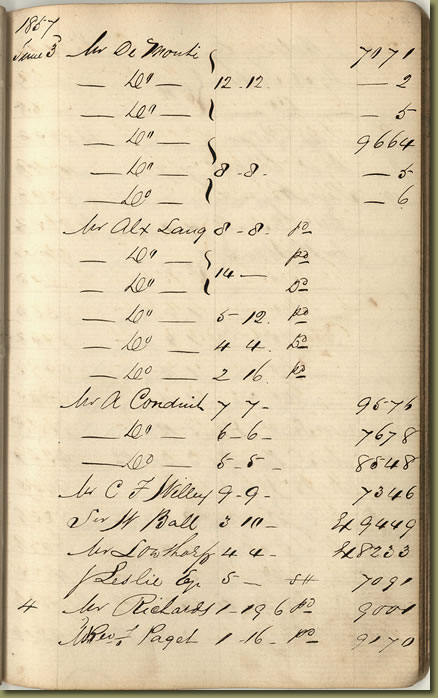 1857
June 3 Mr De Monti 7071
— Do — 12 . 12 . — 2
— Do — — 5
— Do — 9664
— Do — 8 - 8 - — 5
— Do — — 6
Mr Alx Lang 8 - 8 - pd
— Do — 14 — pd
— Do —
— Do — 5 - 12 . pd
— Do — 4 4 .
— Do — 2 16 . pd
Mr A Conduit 7 7 - 9576
— Do — 6 - 6 - 7678
— Do — 5 - 5 - 8548
Mr C F Willey 9 - 9 - 7346
Sir W Ball 3 10 - Ex 9449
Mr Lowthorp 4 4 - Ex 8233
J Leslie Esq 5 — 7091
4 Mr Richards 1 - 19 6 pd 9001
Rev Paget 1 - 16 - pd 9170